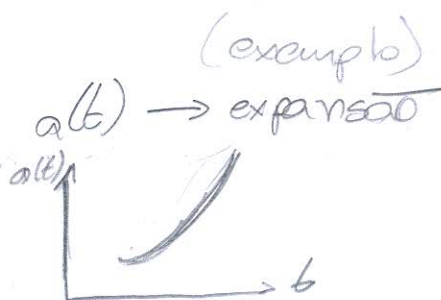 (exemplo)
a(t) → expansão
a(t)
t